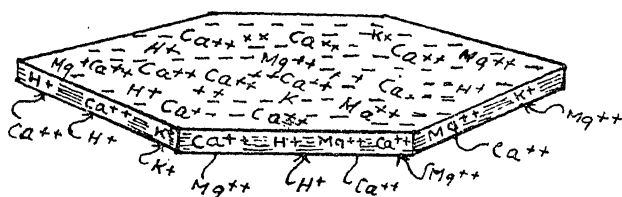 K+
Ca++ ++ Ca++ Ca++ Mg++
H+ Mg++
Mg+ Ca++ Ca++ Ca++ Ca++ Ca H+
H+ ++ K Mg++
Ca+ Ca++
H+ Ca++ K+ Ca++ H+ Mg++ Ca++ Mg++ K+
Ca++ H+ K+ Mg++ H+ Ca++ Mg++ Ca++ Mg++